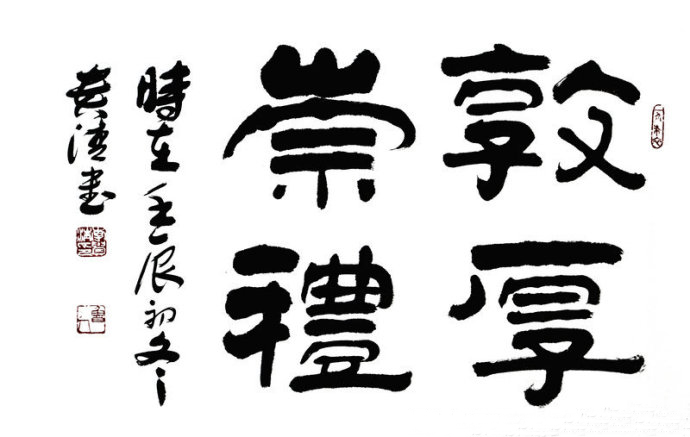 敦厚
崇禮
時在壬辰初冬
書